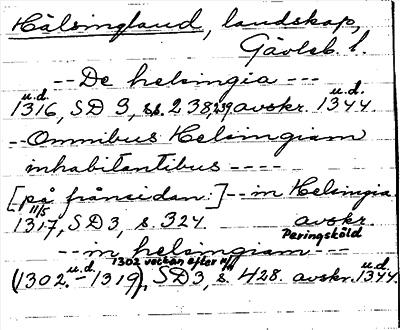 Hälsingland, landskap,
Gävleb. l.
-- De helsingia ---
u.d. u.d.
1316, SD 3, s. 238, 239 avskr. 1344.
-- Omnibus Helsingiam
inhabitantibus ----
[på frånsidan:] -- in Helsingia.
11/5
1317, SD 3, s. 324. avskr.
Peringsköld
-- in helsingiam ---
1302 veckan efter u.d.
(1302 - 1319), SD 3, s. 428. avskr. 1344.